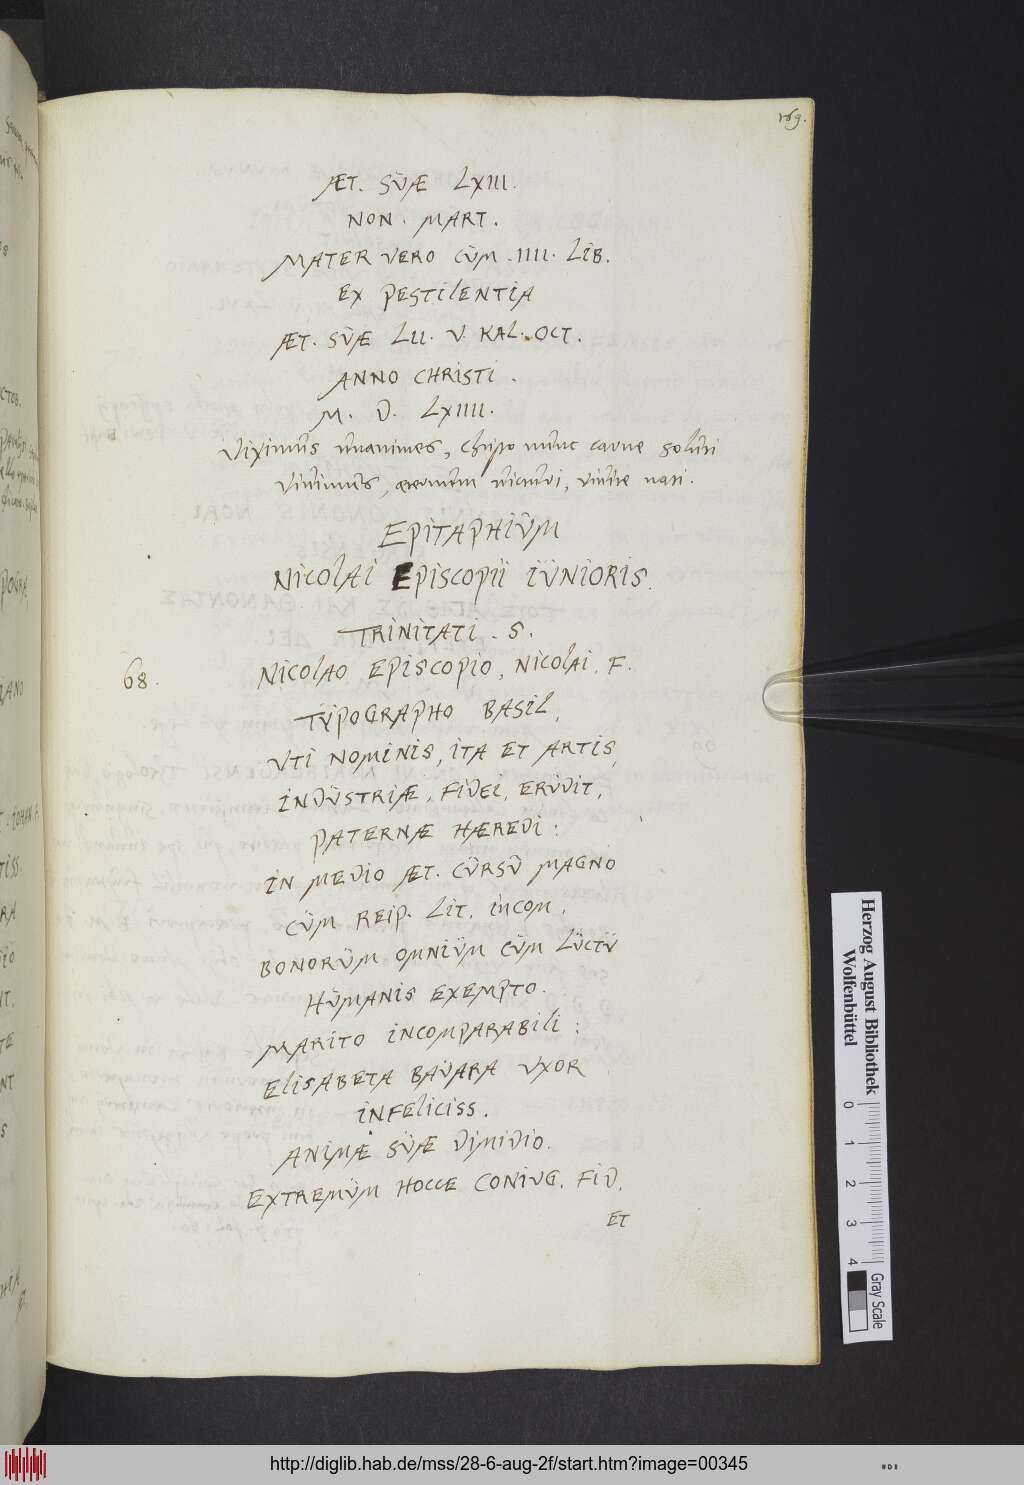 169.
ÆT. SŪÆ LXIII.
NON. MART.
MATER VERO CŪM .IIII. LIB.
EX PESTILENTIA
ÆT. SŪÆ LII. V. KAL. OCT.
ANNO CHRISTI.
M. D. LXIIII.
Viximus unanimes, Christo nunc carne soluti
Vivimus, aeternum victuri, vivite nati.
EPITAPHIŪM
NICOLAI EPISCOPII IŪNIORIS.
TRINITATI. S.
68.
NICOLAO EPISCOPIO, NICOLAI. F.
TYPOGRAPHO BASIL,
VTI NOMINIS, ITA ET ARTIS,
INDŪSTRIÆ, FIDEI, ERVDIT,
PATERNÆ HÆREDI:
IN MEDIO ÆT. CŪRSŪ MAGNO
CŪM REIP. LIT. INCOM,
BONORŪM OMNIŪM CŪM LŪCTŪ
HŪMANIS EXEMPTO.
MARITO INCOMPARABILI:
ELISABETA BAVARA VXOR
INFELICISS.
ANIMÆ SŪÆ DIMIDIO.
EXTREMŪM HOCCE CONIVG. FID.
ET
Herzog August Bibliothek
Wolfenbüttel
0 1 2 3 4
Gray Scale
http://diglib.hab.de/mss/28-6-aug-2f/start.htm?image=00345